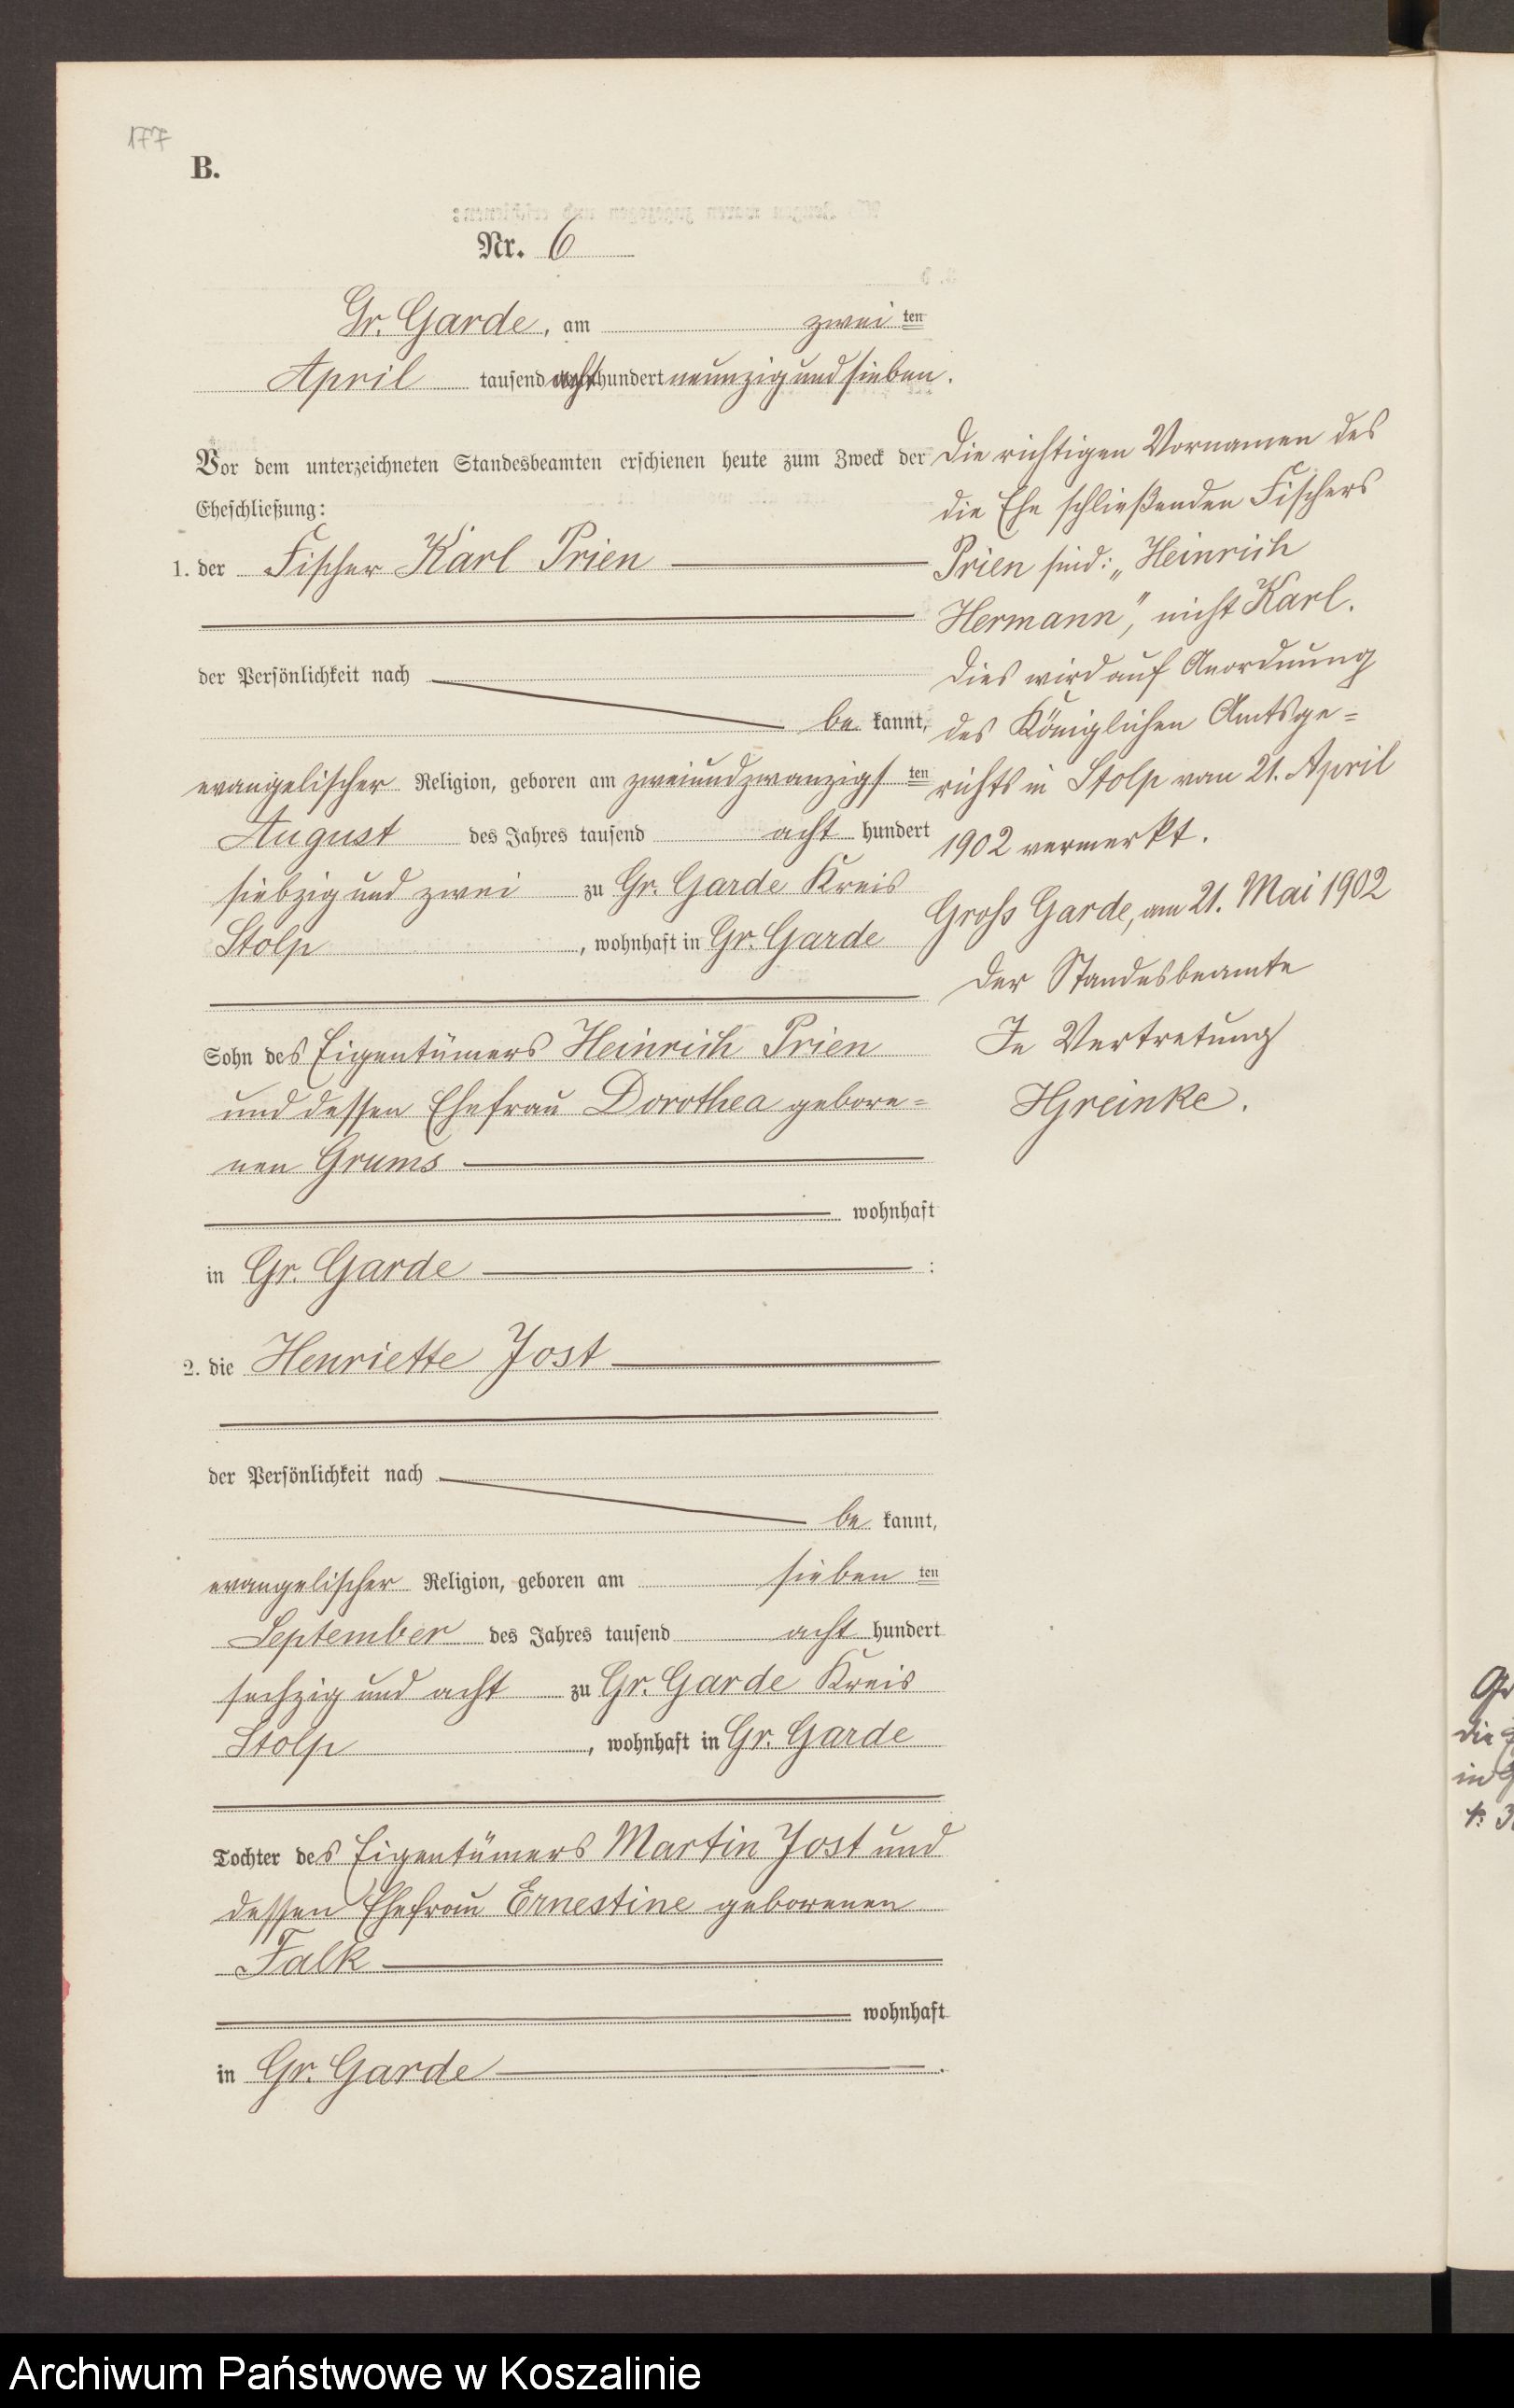 177
B.
Nr. 6
Gr. Garde, am zwei ten
April tausend acht hundert neunzig und sieben.
Vor dem unterzeichneten Standesbeamten erschienen heute zum Zweck der
Eheschließung:
1. der Fischer Karl Prien
der Persönlichkeit nach
be kannt,
evangelischer Religion, geboren am zweiundzwanzigs ten
August des Jahres tausend acht hundert
siebzig und zwei zu Gr. Garde Kreis
Stolp, wohnhaft in Gr. Garde
Sohn des Eigentümers Heinrich Prien
und dessen Ehefrau Dorothea gebore=
nen Grums
wohnhaft
in Gr. Garde :
2. die Henriette Jost
der Persönlichkeit nach
be kannt,
evangelischer Religion, geboren am sieben ten
September des Jahres tausend acht hundert
sechzig und acht zu Gr. Garde Kreis
Stolp, wohnhaft in Gr. Garde
Tochter des Eigentümers Martin Jost und
dessen Ehefrau Ernestine geborenen
Falk
wohnhaft
in Gr. Garde .
Die richtigen Vornamen des
die Ehe schließenden Fischers
Prien sind: „Heinrich
Hermann", nicht Karl.
Dies wird auf Anordnung
des Königlichen Amtsge=
richts in Stolp vom 21. April
1902 vermerkt.
Gross Garde, am 21. Mai 1902
Der Standesbeamte
In Vertretung
Archiwum Państwowe w Koszalinie